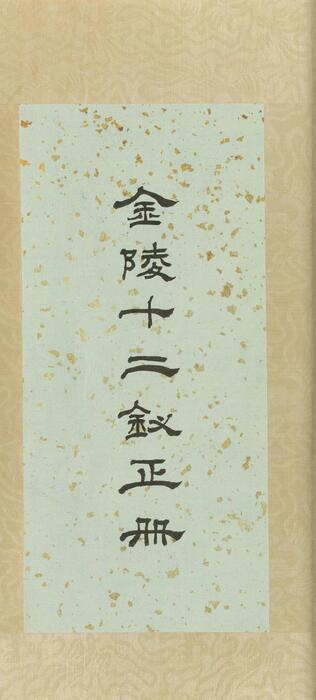 金陵十二釵正册